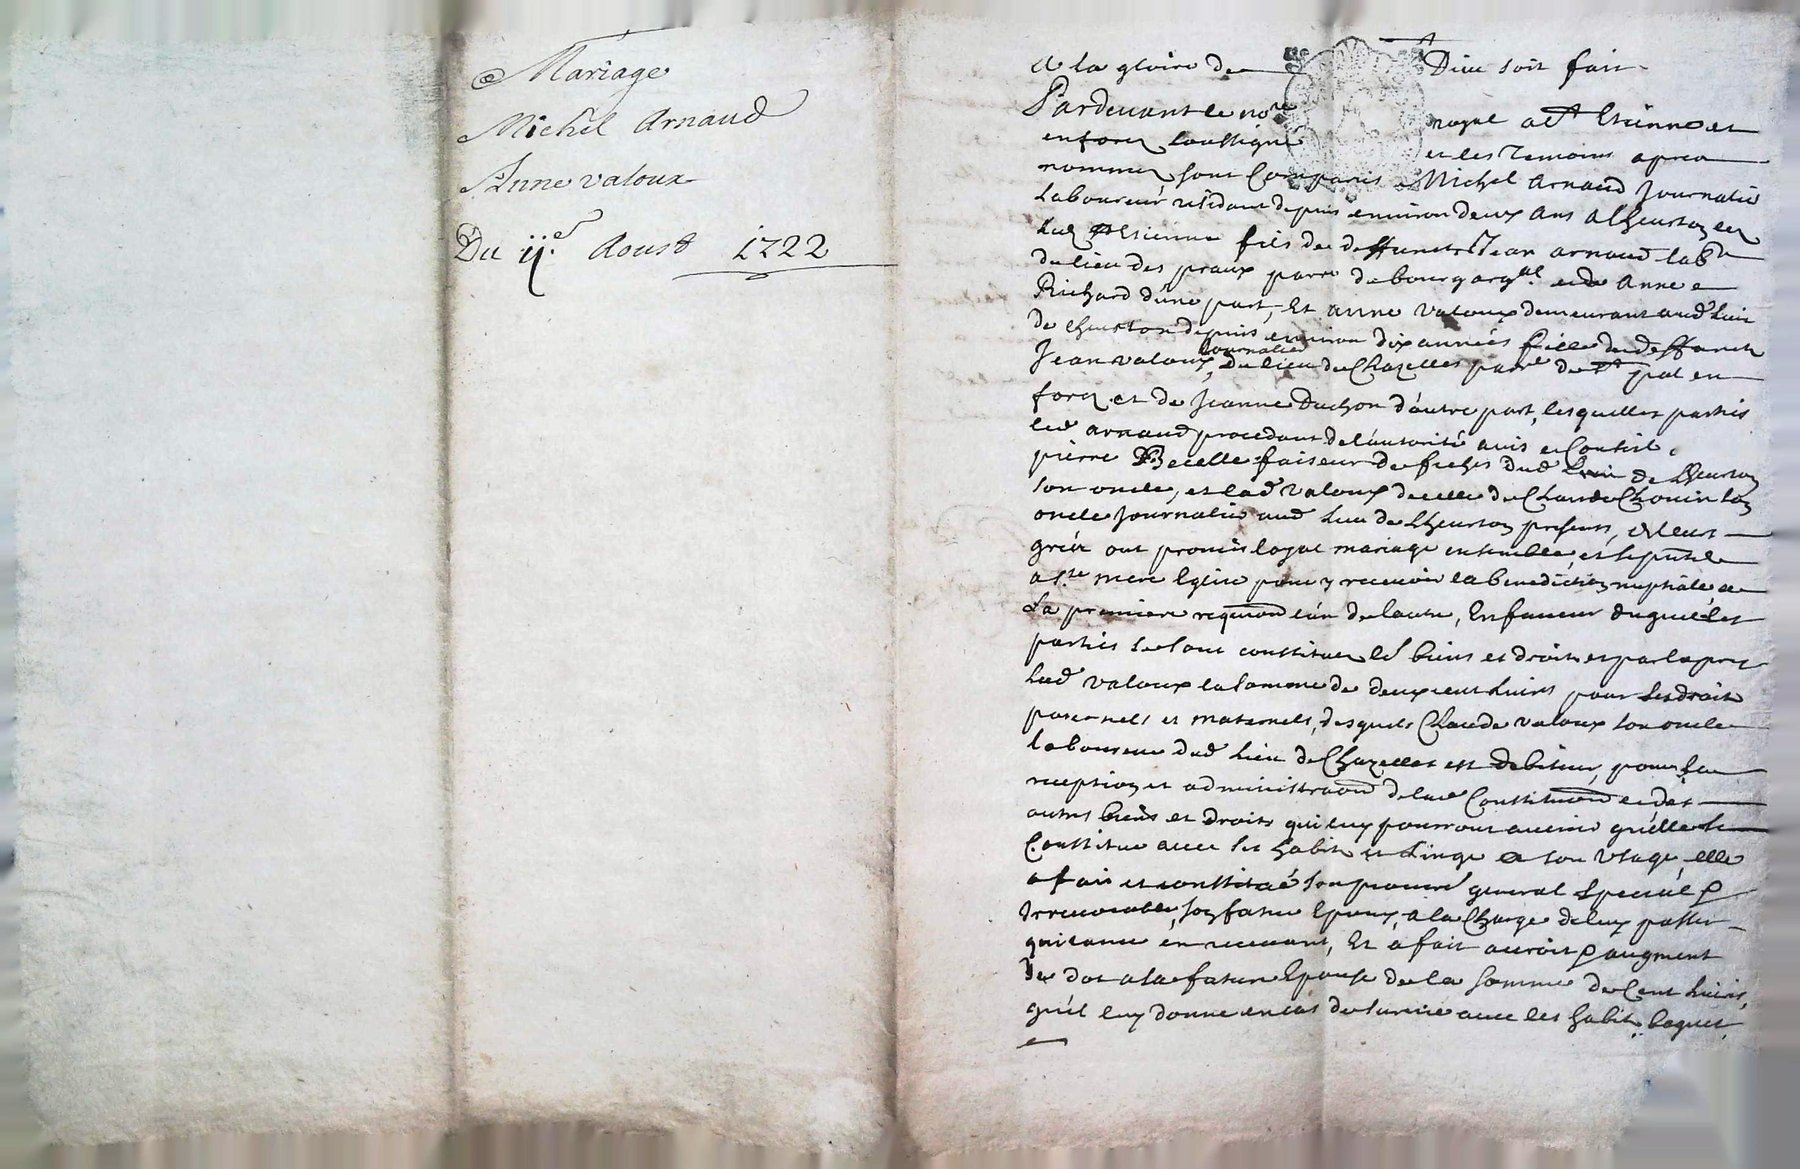 Mariage
Michel Arnaud
Anne valoux
Du 11e. Aoust 1722
A la gloire de Dieu soit fait
Pardevant le nore royal a St Etienne et
en forez soussigné et les temoins apres
nommez sont comparus Michel Arnaud Journalie
Laboureur residant depuis environ deux Ans a Lheurton lez
led St Etienne fils de deffunct Jean arnaud labr
du lieu des praux parre de bourgargal et de Anne
Richard d'une part, Et anne valoux demeurant aud lieu
de Lheurton depuis environ dix années fille de deffunct
Jean valoux, Journalier du lieu de Chazelles parre de St pal en
forez et de Jeanne Duchon d'autre part, lesquelles parties
led arnaud procedant de l'autorité avis et Conseil
pierre Becelle faiseur de fiches dud Lieu de Lheurton
son oncle, et lad valoux de celle de Claude Chouin son
oncle Journalie aud lieu de Lheurton presents, de leurs
gréz ont promis loyal mariage ensemble, et se pnter
a ste mere Eglise pour y recevoir la benediction nuptiale a
La premiere requion l'un de lautre, En faveur duquel les
parties se sont constituez les biens et droits et par expres
lad valoux la somme de deux cent livres pour ses droits
paternels et maternels, desquels Claude valoux son oncle
laboureur dud lieu de Chazelles est debiteur, pour la
reception et administraon de lad Constituon et des
autres biens et droits qui luy pourront avenir qu'elle se
Constitue avec ses habits et Linge a son Usage, elle
a fait et constitué son procureur general special &
Irrevocable, son futur Epoux, a la Charge de luy passer
quitance en recevant, Et a fait accroit & augment
de dot a la future Epouse de la somme de Cent livres,
qu'il luy donne en cas de survie avec les habits, bagues,